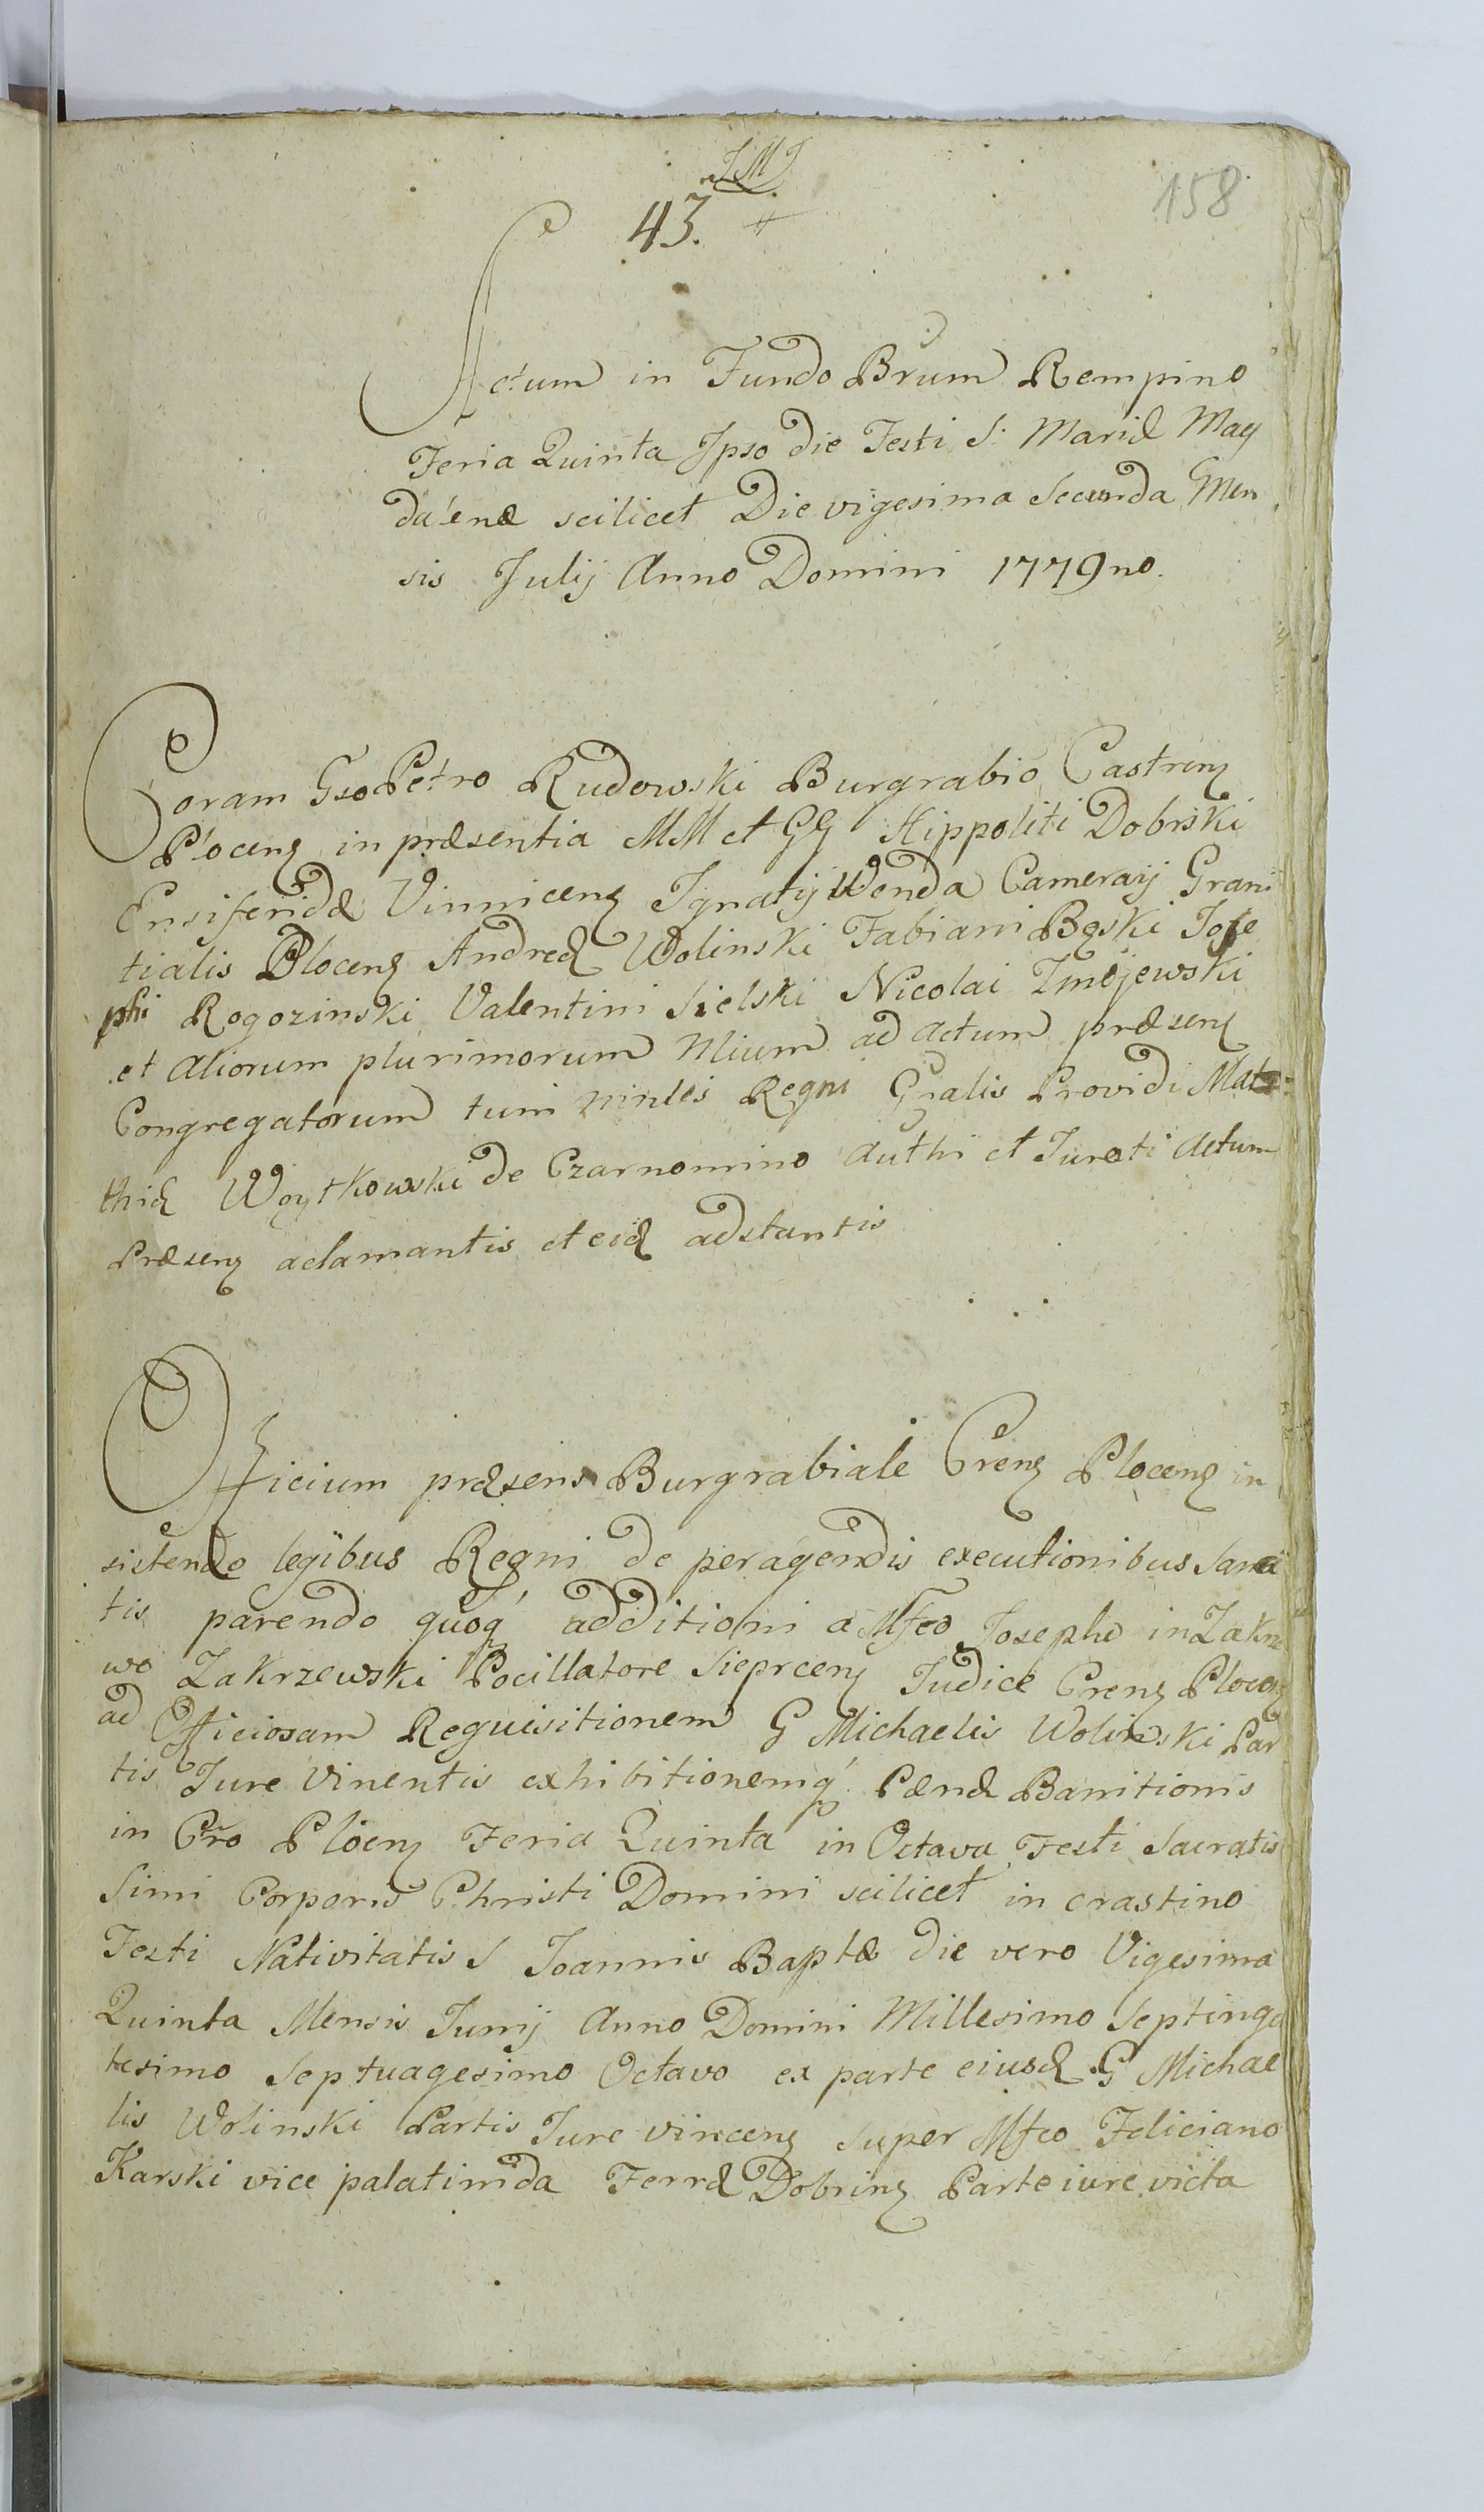 JMJ
158
43.
Actum in Fundo Brum Rempino
Feria Quinta Ipso die Festi S. Mariæ Mag
dalenæ scilicet Die vigesima Secunda Men
sis Julij Anno Domini 1779no.
Coram Gso Petro Rudowski Burgrabio Castren
Plocen in præsentia MM et GG Hippoliti Dobrski
Ensiferidæ Vinnicen Ignatij Wenda Camerarij Grani
tialis Plocen Andreæ Wolinski Fabiani Bęski Jose
phi Rogozinski Valentini Sielski Nicolai Zmijewski
et aliorum plurimorum Nlium ad actum præsen
Congregatorum tum minlis Regni Gnalis Providi Mat
thiæ Woytkowski de Czarnomino Authi et Jurati actum
Præsen aclamantis et eid adstantis
Officium præsens Burgrabiale Cren Plocen in
sistendo legibus Regni de peragendis executionibus Sanci
tis parendo quoq additioni a Mfco Josepho in Zakrze
wo Zakrzewski Pocillatore Sieprcen Judice Cren Plocen
ad Officiosam Requisitionem G Michaelis Wolinski Par
tis Jure Vinentis exhibitionemq Pænæ Banitionis
in Cro Plocen Feria Quinta in Octava Festi Sacratis
Simi Corporis Christi Domini scilicet in crastino
Festi Nativitatis S Joannis Baptæ die vero Vigesima
Quinta Mensis Junij Anno Domini Millesimo Septinge
tesimo Septuagesimo Octavo ex parte eiusd G Michae
lis Wolinski Partis Jure vincens super Mfco Feliciano
Karski vice palatinida Terræ Dobrin Parte iure victa